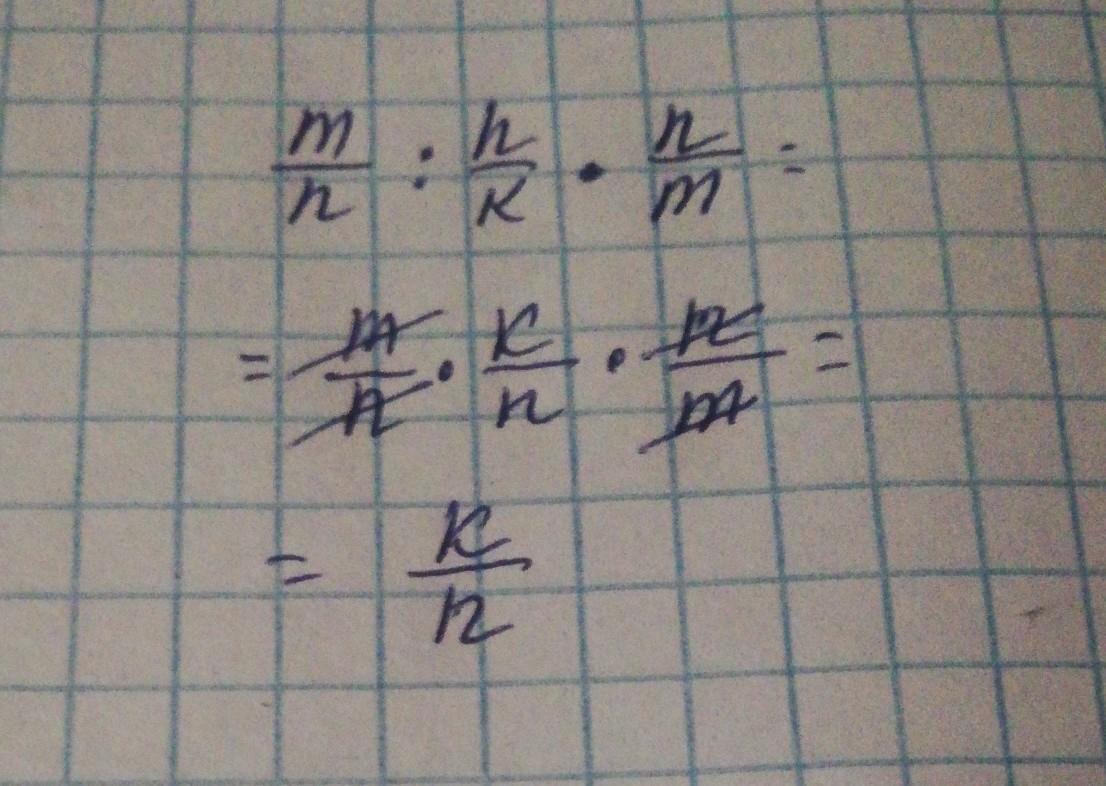 m/n : n/k · n/m =
= m/n · k/n · n/m =
= k/n